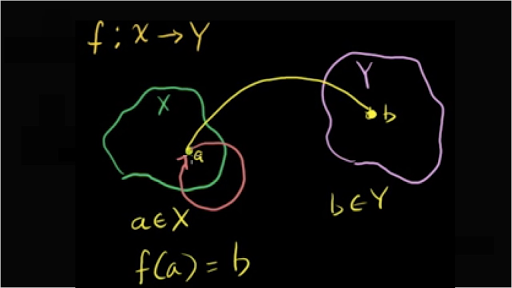 f : X → Y
X
Y
a
b
a ∈ X
b ∈ Y
f(a) = b